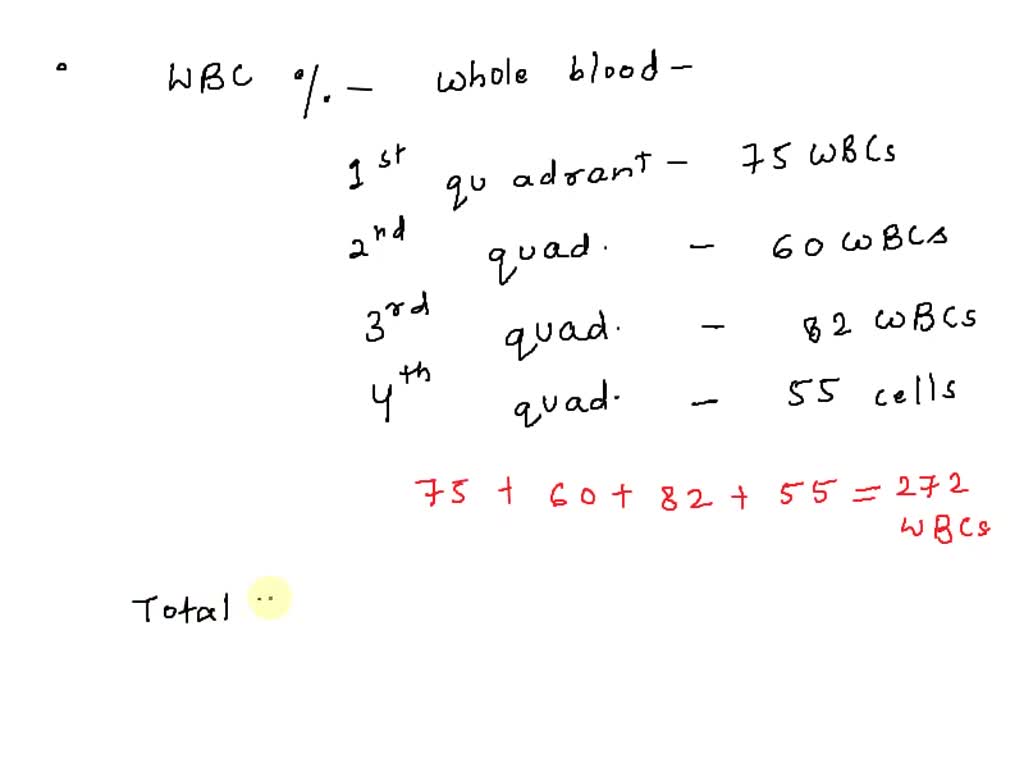 WBC %. - whole blood -
1st quadrant - 75 WBCs
2nd quad. - 60 WBCs
3rd quad. - 82 WBCs
4th quad. - 55 cells
75 + 60 + 82 + 55 = 272
WBCs
Total